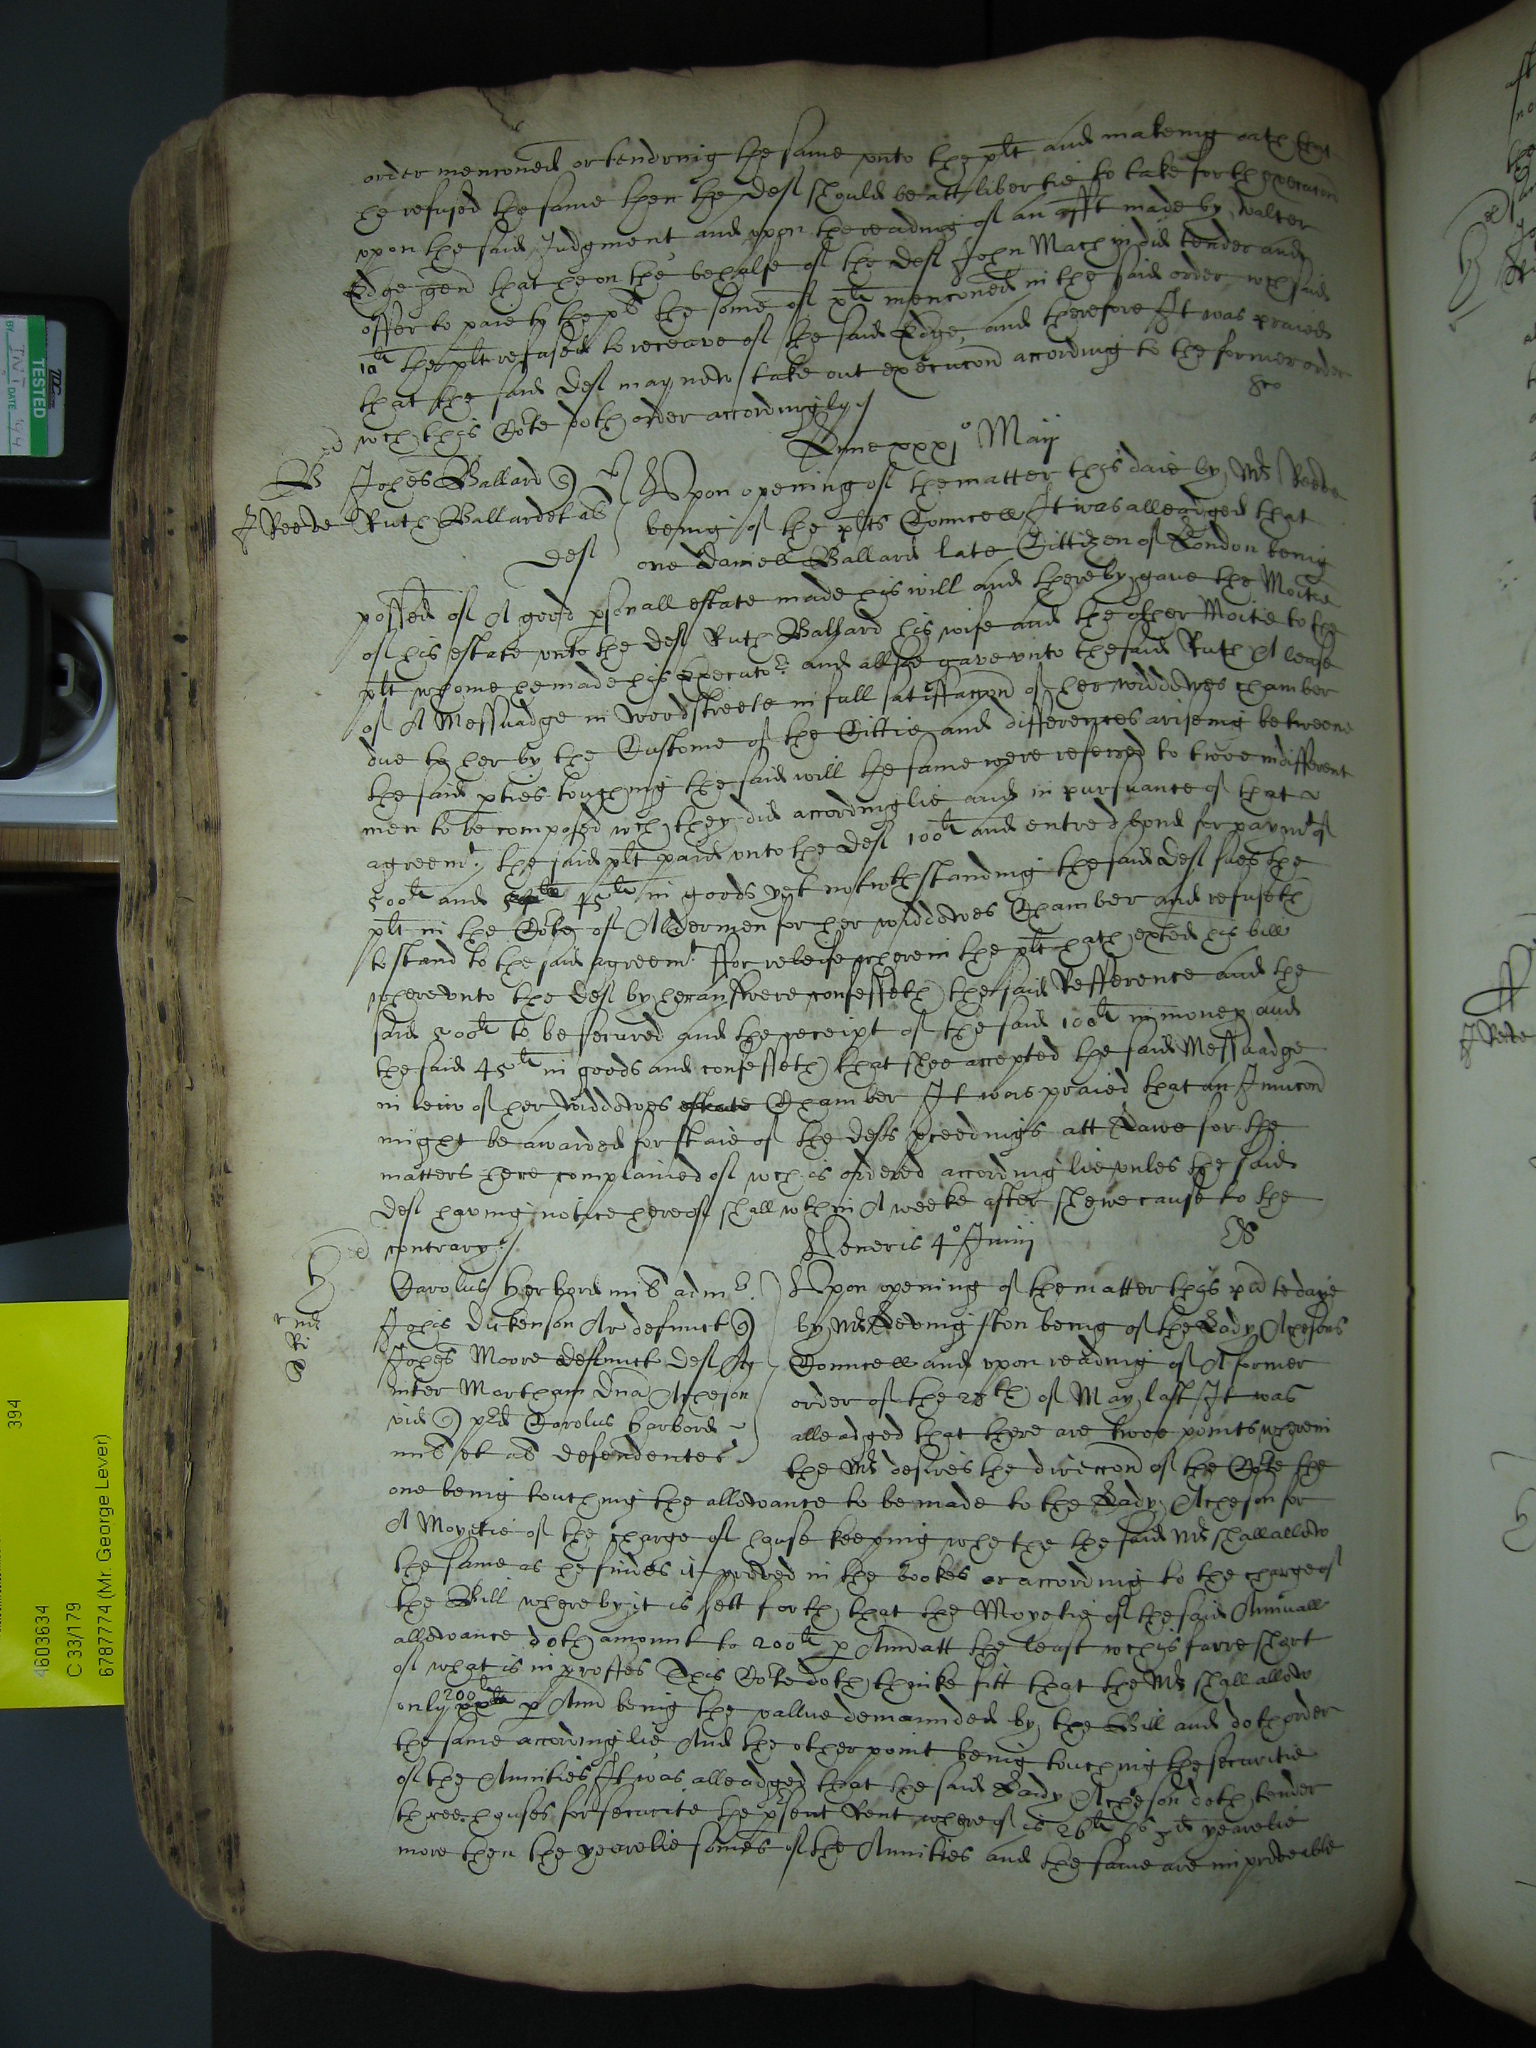 order menconed or tendring the same vnto the plt and making oath that
he refused the same then the Deft should be att libertie to take forth execucon
vpon the said Judgment and vpon the reading of an afft made by Walter
Edge gent that he on the behalfe of the Deft John Machin did tender and
offer to paie to the plt the some of menconed in the said order wch said
10li the plt refused to receave of the said Edge, and therefore It was praied
that the said Deft may now take out execucon according to the former order
wch this Cote doth order accordingly
Lune xxxjo Maij
Johes Ballard
J Reeve
Ruth Ballard et al
Deft
Vpon opening of the matter this daie by Mr Reeve
being of the plts Councell It was alleadged that
one Daniell Ballard late Cittizen of London being
possed of A good psonall estate made his will and thereby gave the Moitie
of his estate vnto the Deft Ruth Ballard his wife and the other Moitie to the
plt whome he made his Executor and allsoe gave vnto the said Ruth A lease
of A Messuadge in Woodstreete in full satisfaccon of her widdowes chamber
due to her by the Custome of the Cittie and differences ariseing betweene
the said pties touching the said will the same were referred to twoe indifferent
men to be composed wch they did accordinglie and in pursuance of that
agreemt. the said plt paid vnto the Deft 100li and entred bond for paymt of
500li and 45li in goods yet notwthstanding the said Deft sues the
plt in the Cote of Aldermen for her widdowes Chamber and refuseth
to stand to the said agreemt. ffor releife wherein the plt hath exted his bill
wherevnto the Deft by her answere confesseth the said Refference and the
said 500li to be secured and the receipt of the said 100li in money and
the said 45li in goods and confesseth that shee accepted the said Messuadge
in leiw of her widdowes estate Chamber It was praied that an Iniuccon
might be awarded for staie of the Defts pceedings att Lawe for the
matters here complained of wch is ordered accordinglie vnles the said
Deft having notice hereof shall wthin A weeke after shewe cause to the
contrary
Veneris 4o Junij
Carolus Herbord mil adm
Johis Dickenson Ar defunct
Johes Moore defunct Deft Ac
inter Martham Dna Acheson
vid Carolus Harbord
mil et al defendentes
Ri
Vpon opening of the matter this pnte daye
by Mr Levingston being of the Lady Achesons
Councell and vpon reading of A former
order of the 28th of May last It was
alleadged that there are twoe points wherein
the Mr desires the direccon of the Cote the
one being touching the allowance to be made to the Lady Acheson for
A Moyetie of the charge of house keeping whether the said Mr shall allow
the same as he findes it proved in the bookes or according to the charge of
the Bill whereby it is sett forth that the Moyetie of the said Annuall
allowance doth amount to 200li p Ann att the least wch is farre short
of what is in proffes This Cote doth thinke fitt that the Mr shall allow
only 200li p Ann being the vallue demaunded by the Bill and doth order
the same accordinglie And the other point being touching the securitie
of the Annities It was alleadged that the said Lady Acheson doth tender
three houses for securitie the psent Rent whereof is 26li yearelie
more then the yearelie somes of the Annities and the same are improveable
TESTED
DATE
BY
4603634
394
C 33/179
6787774 (Mr. George Lever)